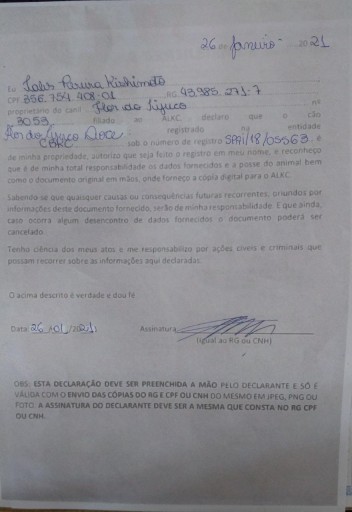 26 de Janeiro 2021
Eu Kishimoto
CPF 356.754.408-01 RG 43985.271-7
proprietário do canil Flor do Tijuco nº
3053 filiado ao ALKC, declaro que o cão
Flor do Tijuco registrado na entidade
CBKC sob o número de registro SPAI/18/05563, é
de minha propriedade, autorizo que seja feito o registro em meu nome, e reconheço
que é de minha total responsabilidade os dados fornecidos e a posse do animal bem
como o documento original em mãos, onde forneço a cópia digital para o ALKC.
Sabendo-se que quaisquer causas ou consequências futuras recorrentes, oriundos por
informações deste documento fornecido, serão de minha responsabilidade. E que ainda,
caso ocorra algum desencontro de dados fornecidos o documento poderá ser
cancelado.
Tenho ciência dos meus atos e me responsabilizo por ações cíveis e criminais que
possam recorrer sobre as informações aqui declaradas.
O acima descrito é verdade e dou fé.
Data: 26/01/2021 Assinatura
(igual ao RG ou CNH)
OBS: ESTA DECLARAÇÃO DEVE SER PREENCHIDA A MÃO PELO DECLARANTE E SÓ É
VÁLIDA COM O ENVIO DAS CÓPIAS DO RG E CPF OU CNH DO MESMO EM JPEG, PNG OU
FOTO. A ASSINATURA DO DECLARANTE DEVE SER A MESMA QUE CONSTA NO RG CPF
OU CNH.